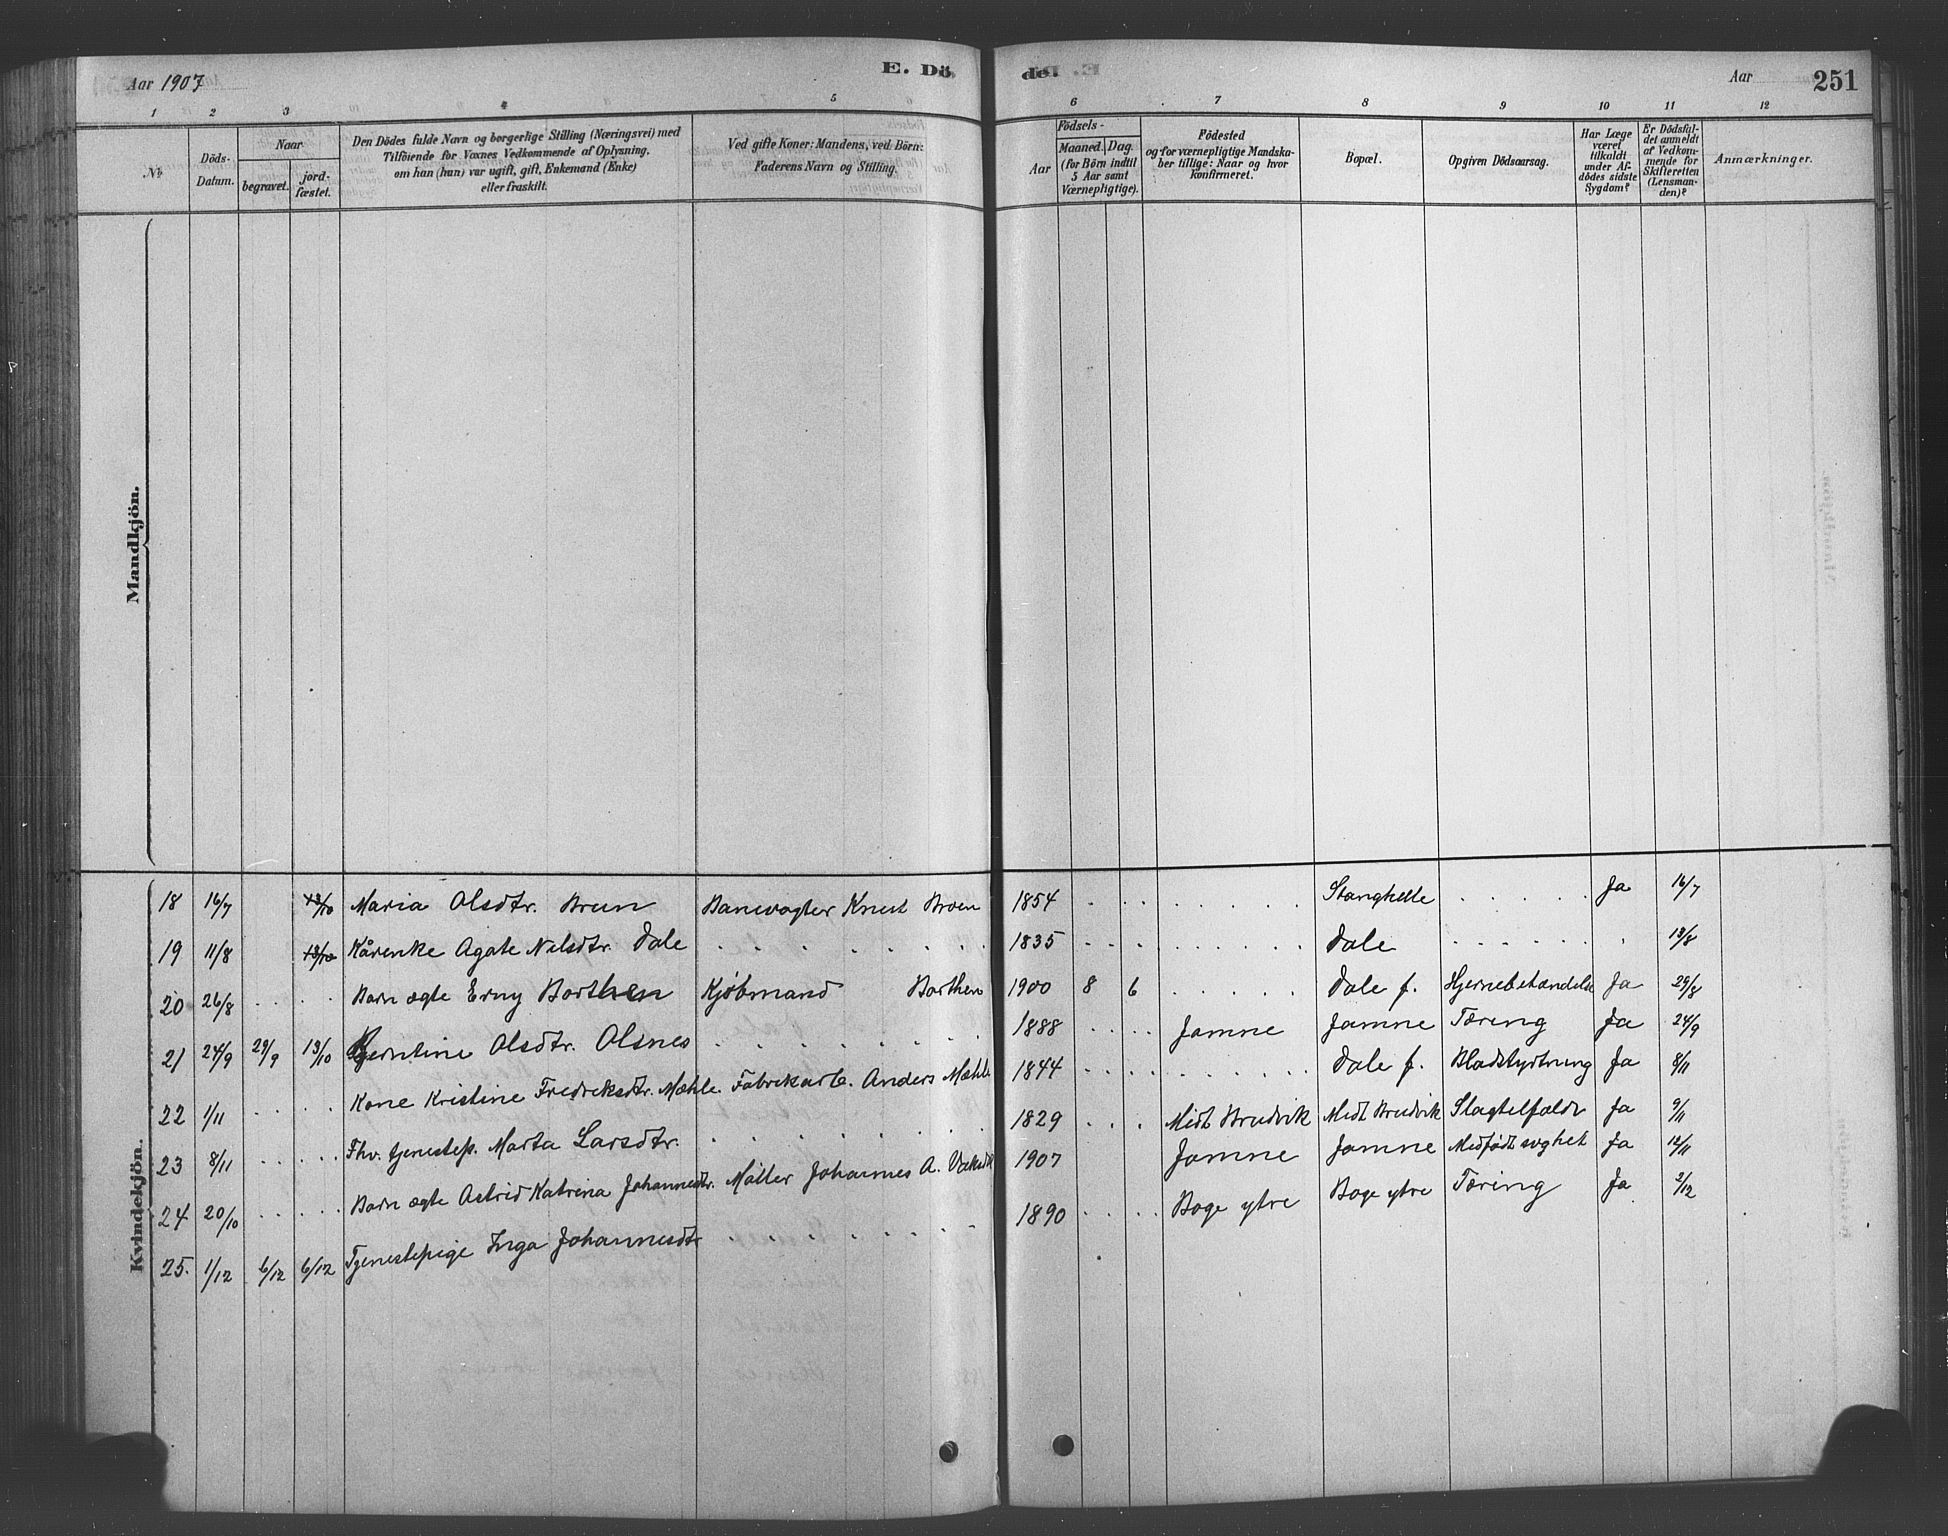 Aar 1907
E. Dö
de.
Aar
251
1 2 3 4 5 6 7 8 9 10 11 12
No
Döds-Datum.
Naar
begravet.
jord-fæstet.
Den Dödes fulde Navn og borgerlige Stilling (Næringsvei) med
Tilföiende for Voxnes Vedkommende af Oplysning,
om han (hun) var ugift, gift, Enkemand (Enke)
eller fraskilt.
Ved gifte Koner: Mandens, ved Börn:
Faderens Navn og Stilling.
Födsels-
Aar
Maaned. Dag.
(for Börn indtil
5 Aar samt
Værnepligtige).
Födested
og for værnepligtige Mandska-
ber tillige: Naar og hvor
konfirmeret.
Bopæl.
Opgiven Dödsaarsag.
Har Læge
været
tilkaldt
under Af-
dödes sidste
Sygdom?
Er Dödsfal-
det anmeldt
af Vedkom-
mende for
Skifteretten
(Lensman-
den)?
Anmærkninger.
Mandkjön.
Kvindekjön.
18 16/7 13/10 Maria Olsdtr. Brun Banevogter Knut Broen 1854 Stanghelle Ja 16/7
19 11/8 13/10 Kårenke Agate Nilsdtr. Dale 1835 Dale 13/8
20 26/8 Barn ægte Erny Borthen Kjøbmand Borthen 1900 8 6 Dale f. Hjernebetændelse Ja 29/8
21 24/9 29/9 13/10 Bjerntine Olsdtr. Olsnes 1888 Jamne Jamne Tæring Ja 24/9
22 1/11 Kone Kristine Fredriksdtr. Mæhle Fabrikarb. Anders Mæhle 1844 Dale f. Blodstyrtning Ja 8/11
23 8/11 Fhv. tjenestep. Marta Larsdtr. 1829 Midt Brudvik Midt Brudvik Slagtilfælde Ja 9/11
24 20/10 Barn ægte Astrid Katrina Johannesdtr. Møller Johannes A. 1907 Jamne Jamne Medfødt svaghet Ja 12/11
25. 1/12 6/12 6/12 Tjenestepige Inga Johannesdtr 1890 Boge ytre Boge ytre Tæring Ja 2/12